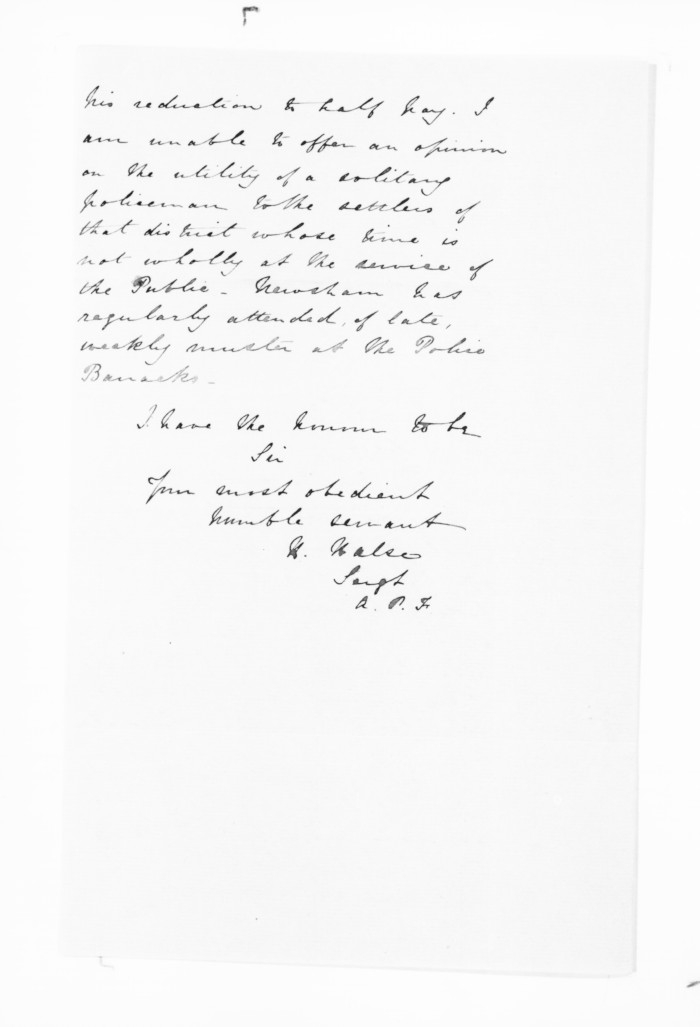 his reduction to half pay. I
am unable to offer an opinion
on the utility of a solitary
policeman to the settlers of
that district whose time is
not wholly at the service of
the Public – Newsham has
regularly attended, of late,
weekly muster at the Police
Barracks –
I have the honour to be
Sir
Your most obedient
humble servant
H. Halse
Sergt
A. P. F.